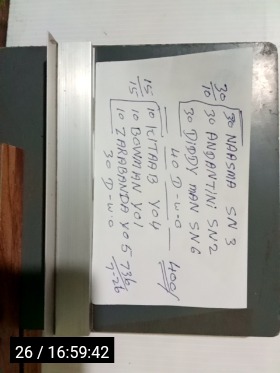 30 NAASMA SN 3
30
10 30 ANDANTINI SN 2
30 DIDDY MAN SN 6
40 D-W-O
15
15 10 KITAAB YO 4
10 BOWMAN YO 1
10 ZARABANDA YO 5
30 D-W-O
26 / 16:59:42